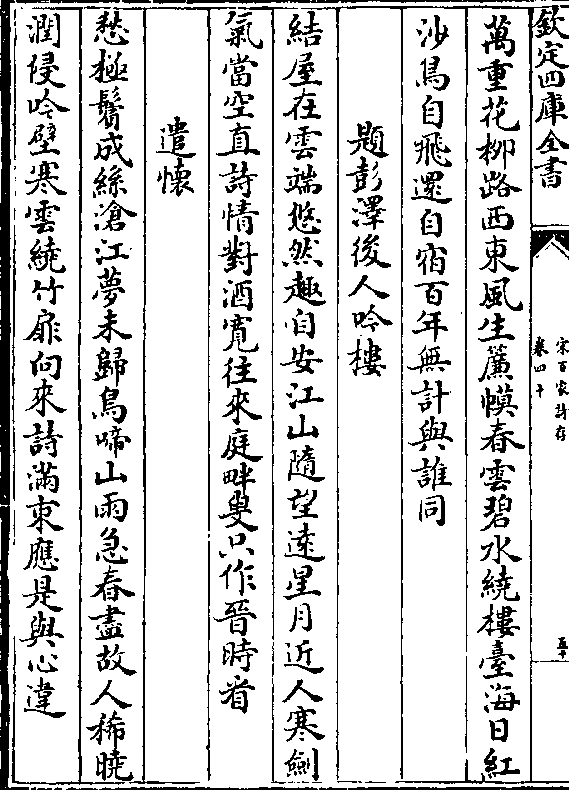 欽定四庫全書
宋百家詩存
卷四十
五十
萬重花柳路西東風生簾幙春雲碧水繞樓臺海日紅
沙鳥自飛還自宿百年無計與誰同
題彭澤後人吟樓
結屋在雲端悠然趣自安江山隨望遠星月近人寒劍
氣當空直詩情對酒寛往來庭畔叟只作晉時看
遣懷
愁極鬢成絲滄江夢未歸鳥啼山雨急春盡故人稀曉
潤侵吟壁寒雲繞竹扉向來詩滿束應是與心違